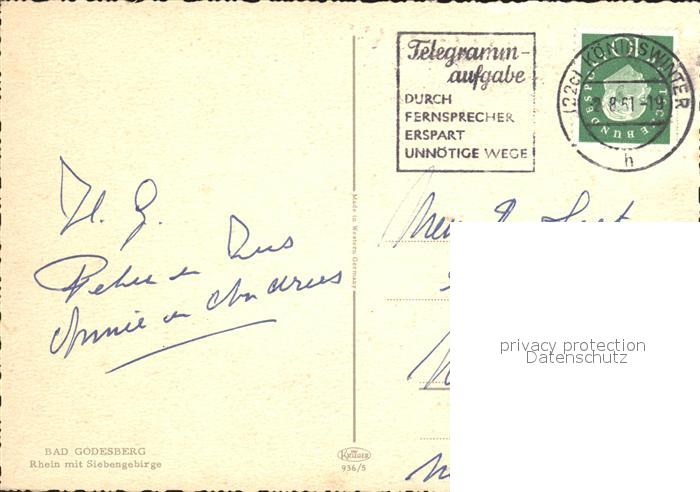 Telegramm-
aufgabe
DURCH
FERNSPRECHER
ERSPART
UNNÖTIGE WEGE
(22c) KÖNIGSWINTER
2.8.61-19
h
DEUTSCHE BUNDESPOST
H. G.
en
Annie en Andries
Made in Western Germany
privacy protection
Datenschutz
BAD GODESBERG
Rhein mit Siebengebirge
KRÜGER
936/5